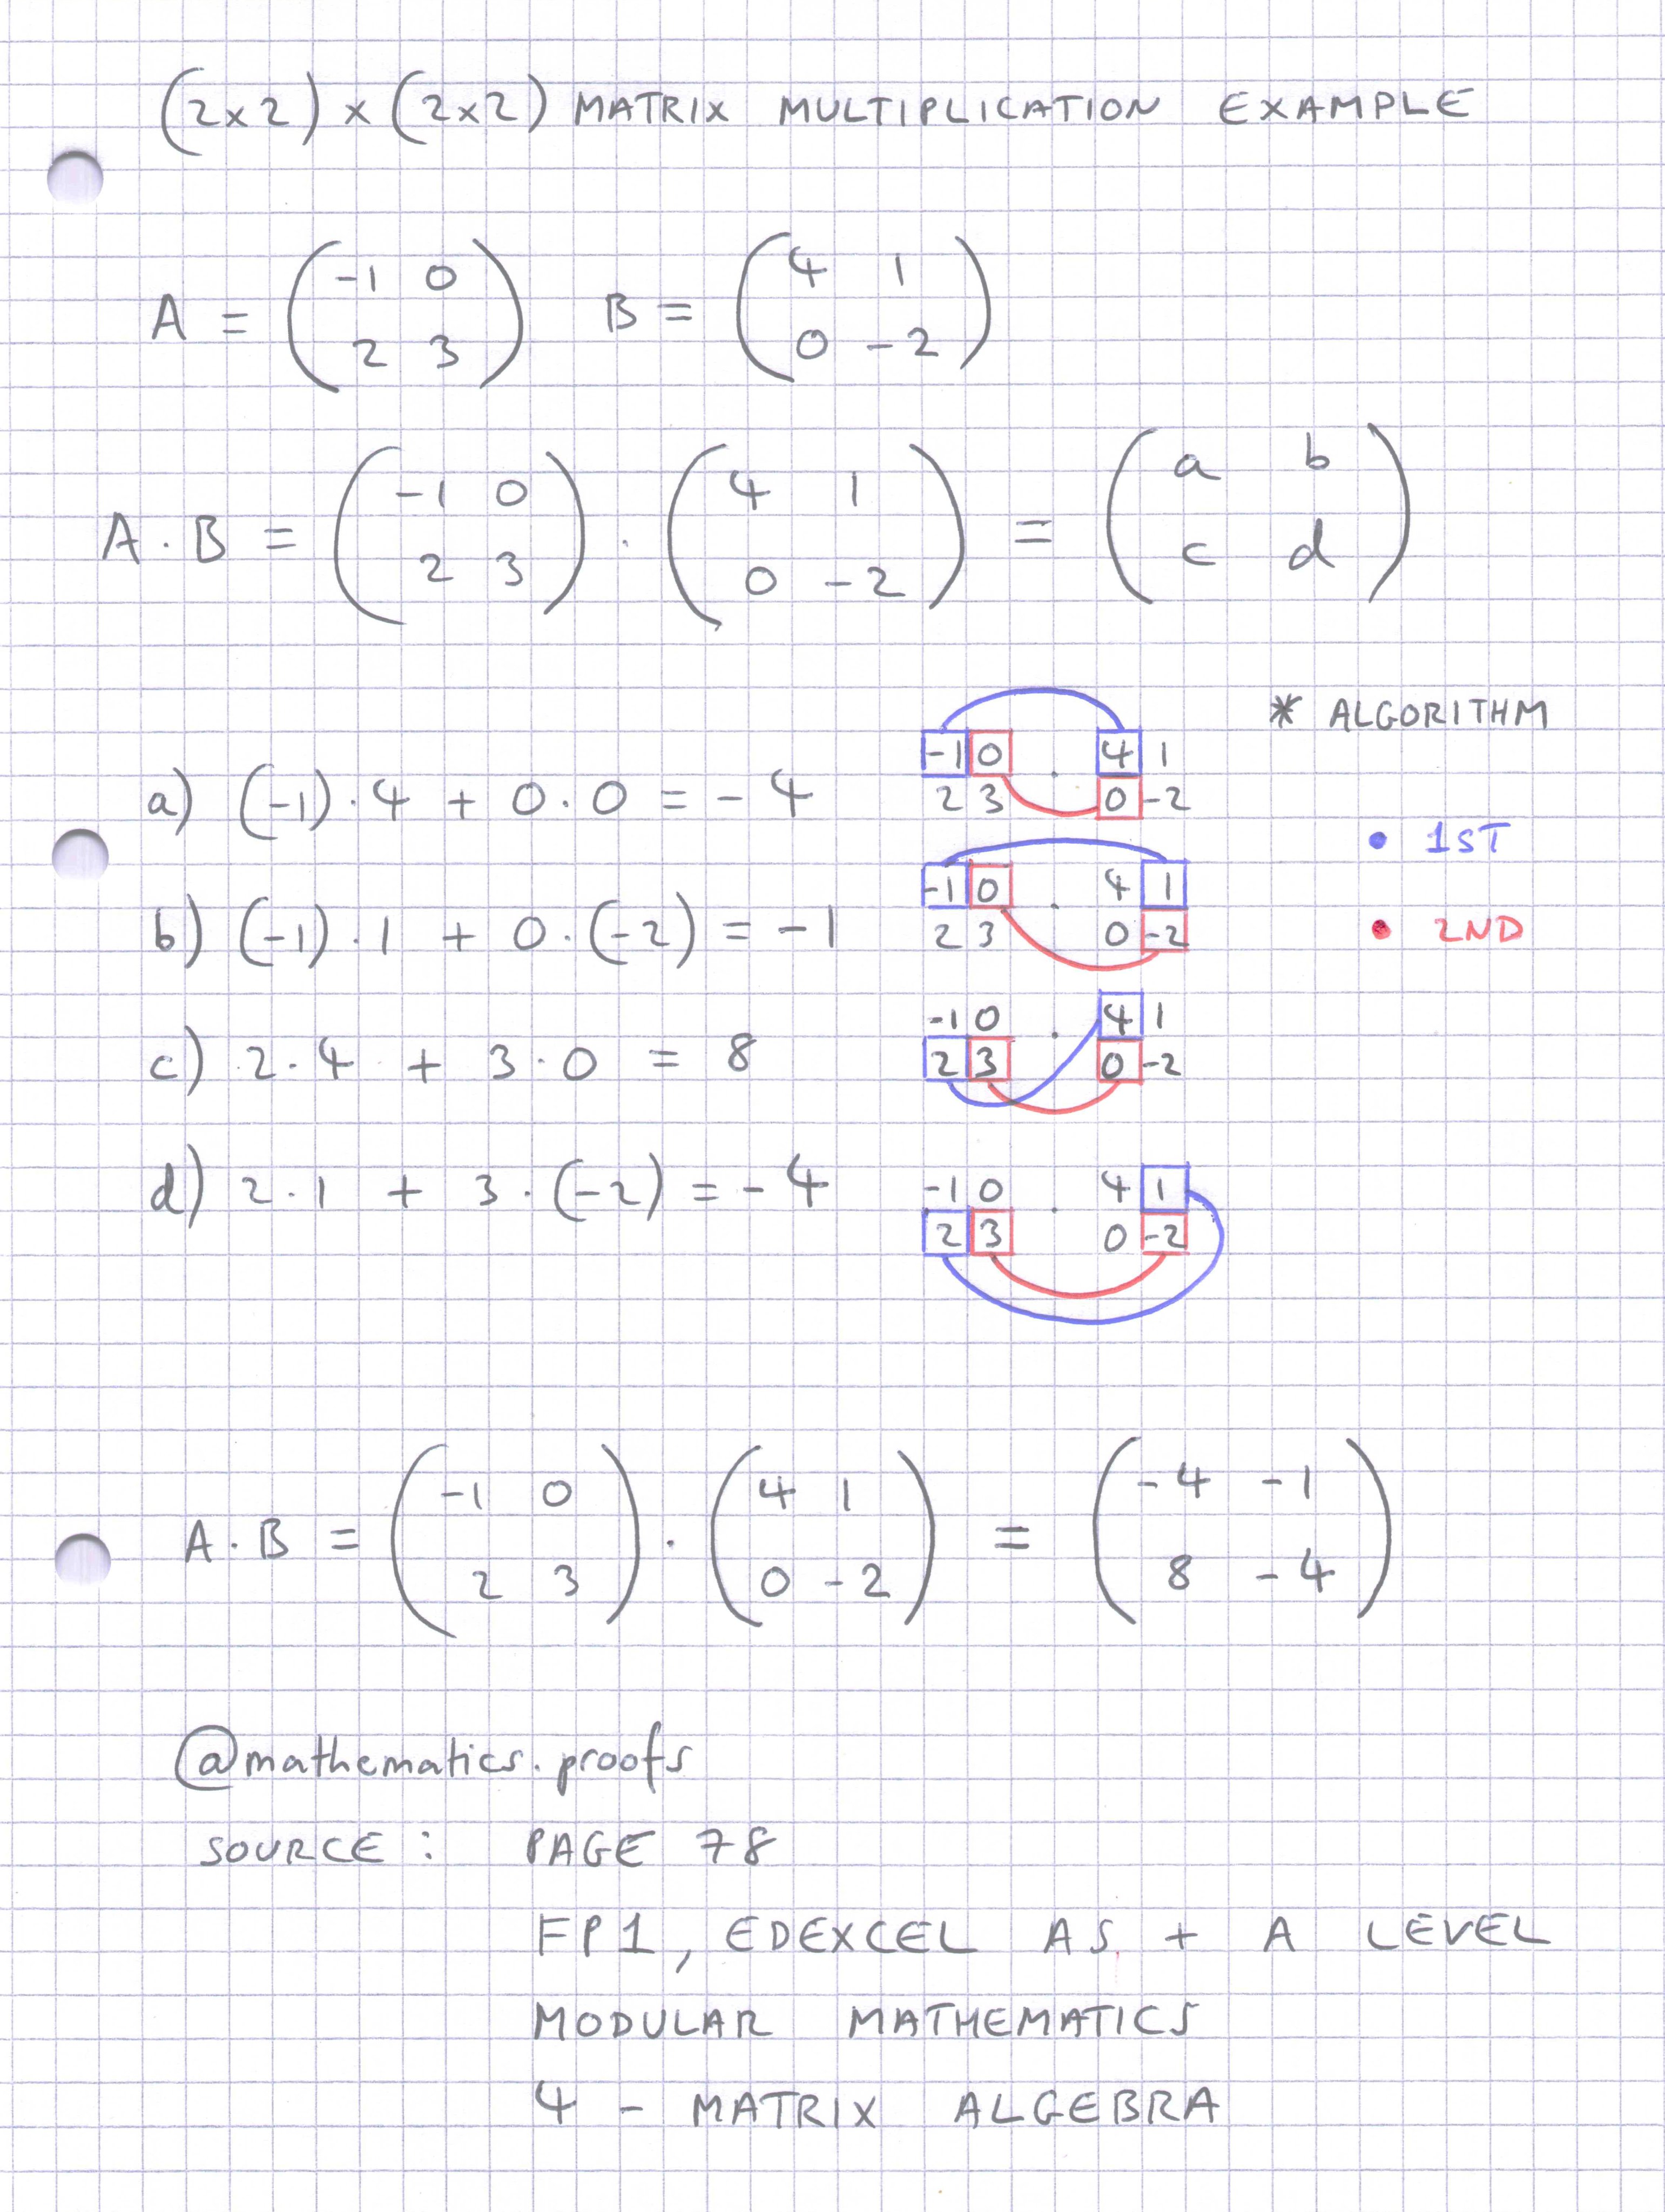 (2x2) x (2x2) MATRIX MULTIPLICATION EXAMPLE
A = (-1 0
2 3) B = (4 1
0 -2)
A . B = (-1 0
2 3) . (4 1
0 -2) = (a b
c d)
* ALGORITHM
a) (-1) . 4 + 0 . 0 = -4
-1 0 . 4 1
2 3 0 -2
• 1ST
b) (-1) . 1 + 0 . (-2) = -1
-1 0 . 4 1
2 3 0 -2
• 2ND
c) 2 . 4 + 3 . 0 = 8
-1 0 . 4 1
2 3 0 -2
d) 2 . 1 + 3 . (-2) = -4
-1 0 . 4 1
2 3 0 -2
A . B = (-1 0
2 3) . (4 1
0 -2) = (-4 -1
8 -4)
@mathematics.proofs
SOURCE : PAGE 78
FP1, EDEXCEL AS + A LEVEL
MODULAR MATHEMATICS
4 - MATRIX ALGEBRA